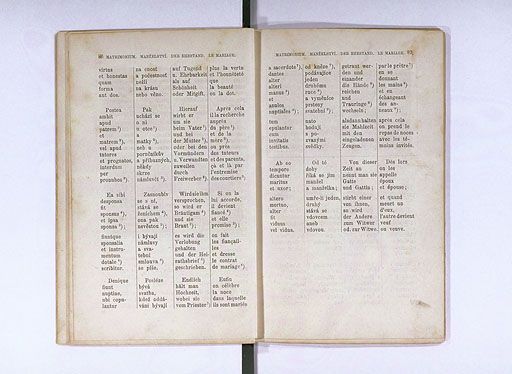 MATRIMONIUM. MANŽELSTVÍ. DER EHESTAND. LE MARIAGE.
virtus na cnost auf Tugend plus la vertu
et honestas a počestnost u. Ehrbarkeit et l'honnêteté
quam nežli als auf que
forma na krásu Schönheit la beauté
aut dos. nebo věno. oder Mitgift. ou la dot.
Postea Pak Hierauf Après cela
ambit uchází wirbt er il la recherche
apud se o ni um sie auprès
patrem u otce beim Vater du père
et a und bei et de la
matrem, matky, der Mutter, mère,
vel apud neb u oder bei den ou près des
tutores poručníků Vormündern tuteurs
et prognatos, a příbuzných, u. Verwandten et des parents,
interdum někdy zuweilen ça et là par
per skrze durch l'entremise
pronubos. námluvčí. Freiwerber.
Ea sibi Zasnoubiv Wird sie ihm Si on la
desponsa se s ní, versprochen, lui accorde,
fit stává se so wird er il devient
sponsus ženichem, Bräutigam fiancé
et ipsa ona pak und sie et elle
sponsa; nevěstou; Braut; promise;
fiuntque i bývají es wird die on fait
sponsalia námluvy Verlobung les fiançail-
et instru- a sva- gehalten les
mentum tební und der Hei- et dresse
dotale smlouva rathsbrief le contrat
scribitur. se píše. geschrieben. de mariage.
Denique Posléze Endlich Enfin
fiunt bývá hält man on célèbre
nuptiae, svatba, Hochzeit, la noce
ubi copu- když oddá- wobei sie dans laquelle
lantur váni bývají vom Priester ils sont mariés
MATRIMONIUM. MANŽELSTVÍ. DER EHESTAND. LE MARIAGE. 93
a sacerdote, od kněze, getraut wer- par le prêtre
dantes podávajíce den und en se
alter jeden einander donnant
alteri druhému die Hände les mains
manus ruce reichen et en
et a vyměníce und échangeant
anulos prsteny Trauringe des an-
nuptiales; svatební; wechseln; neaux;
tum nato alsdann halten après cela
epulantur hodují sie Mahlzeit on prend le
cum s po- mit den repas de noces
invitatis zvanými eingeladenen avec les té-
testibus. svědky. Zeugen. moins invités.
Ab eo Od té Von dieser Dès lors
tempore doby Zeit an on les
dicuntur říká se jim nennt man sie appelle
maritus manžel Gatte époux
et uxor; a manželka; und Gattin; et épouse;
altero umře-li jeden, stirbt einer et quand
mortuo, druhý von ihnen, meurt un
alter stává se so wird d'eux,
fit vdovcem der Andere l'autre devient
viduus aneb zum Witwer veuf
vel vidua. vdovou. od. zur Witwe. ou veuve.